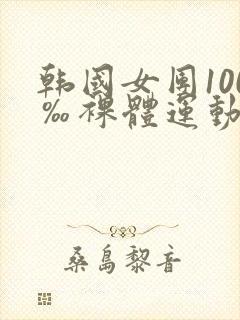 韩國女团100
‰裸體运動
桑島黎音